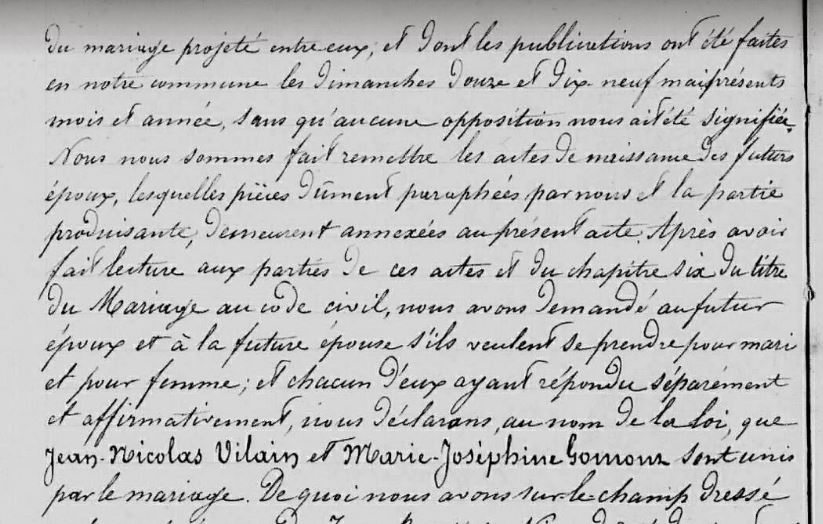 du mariage projeté entre eux, et dont les publications ont été faites
en notre commune les dimanches douze et dix-neuf mai présents
mois et année, sans qu'aucune opposition nous ait été signifiée.
Nous nous sommes fait remettre les actes de naissance des futurs
époux, lesquelles pièces dûment paraphées par nous et la partie
produisante, demeurent annexées au présent acte. Après avoir
fait lecture aux parties de ces actes et du chapitre six du titre
du Mariage au code civil, nous avons demandé au futur
époux et à la future épouse s'ils veulent se prendre pour mari
et pour femme; et chacun d'eux ayant répondu séparément
et affirmativement, nous déclarons, au nom de la loi, que
Jean-Nicolas Vilain et Marie-Joséphine sont unis
par le mariage. De quoi nous avons sur le champ dressé